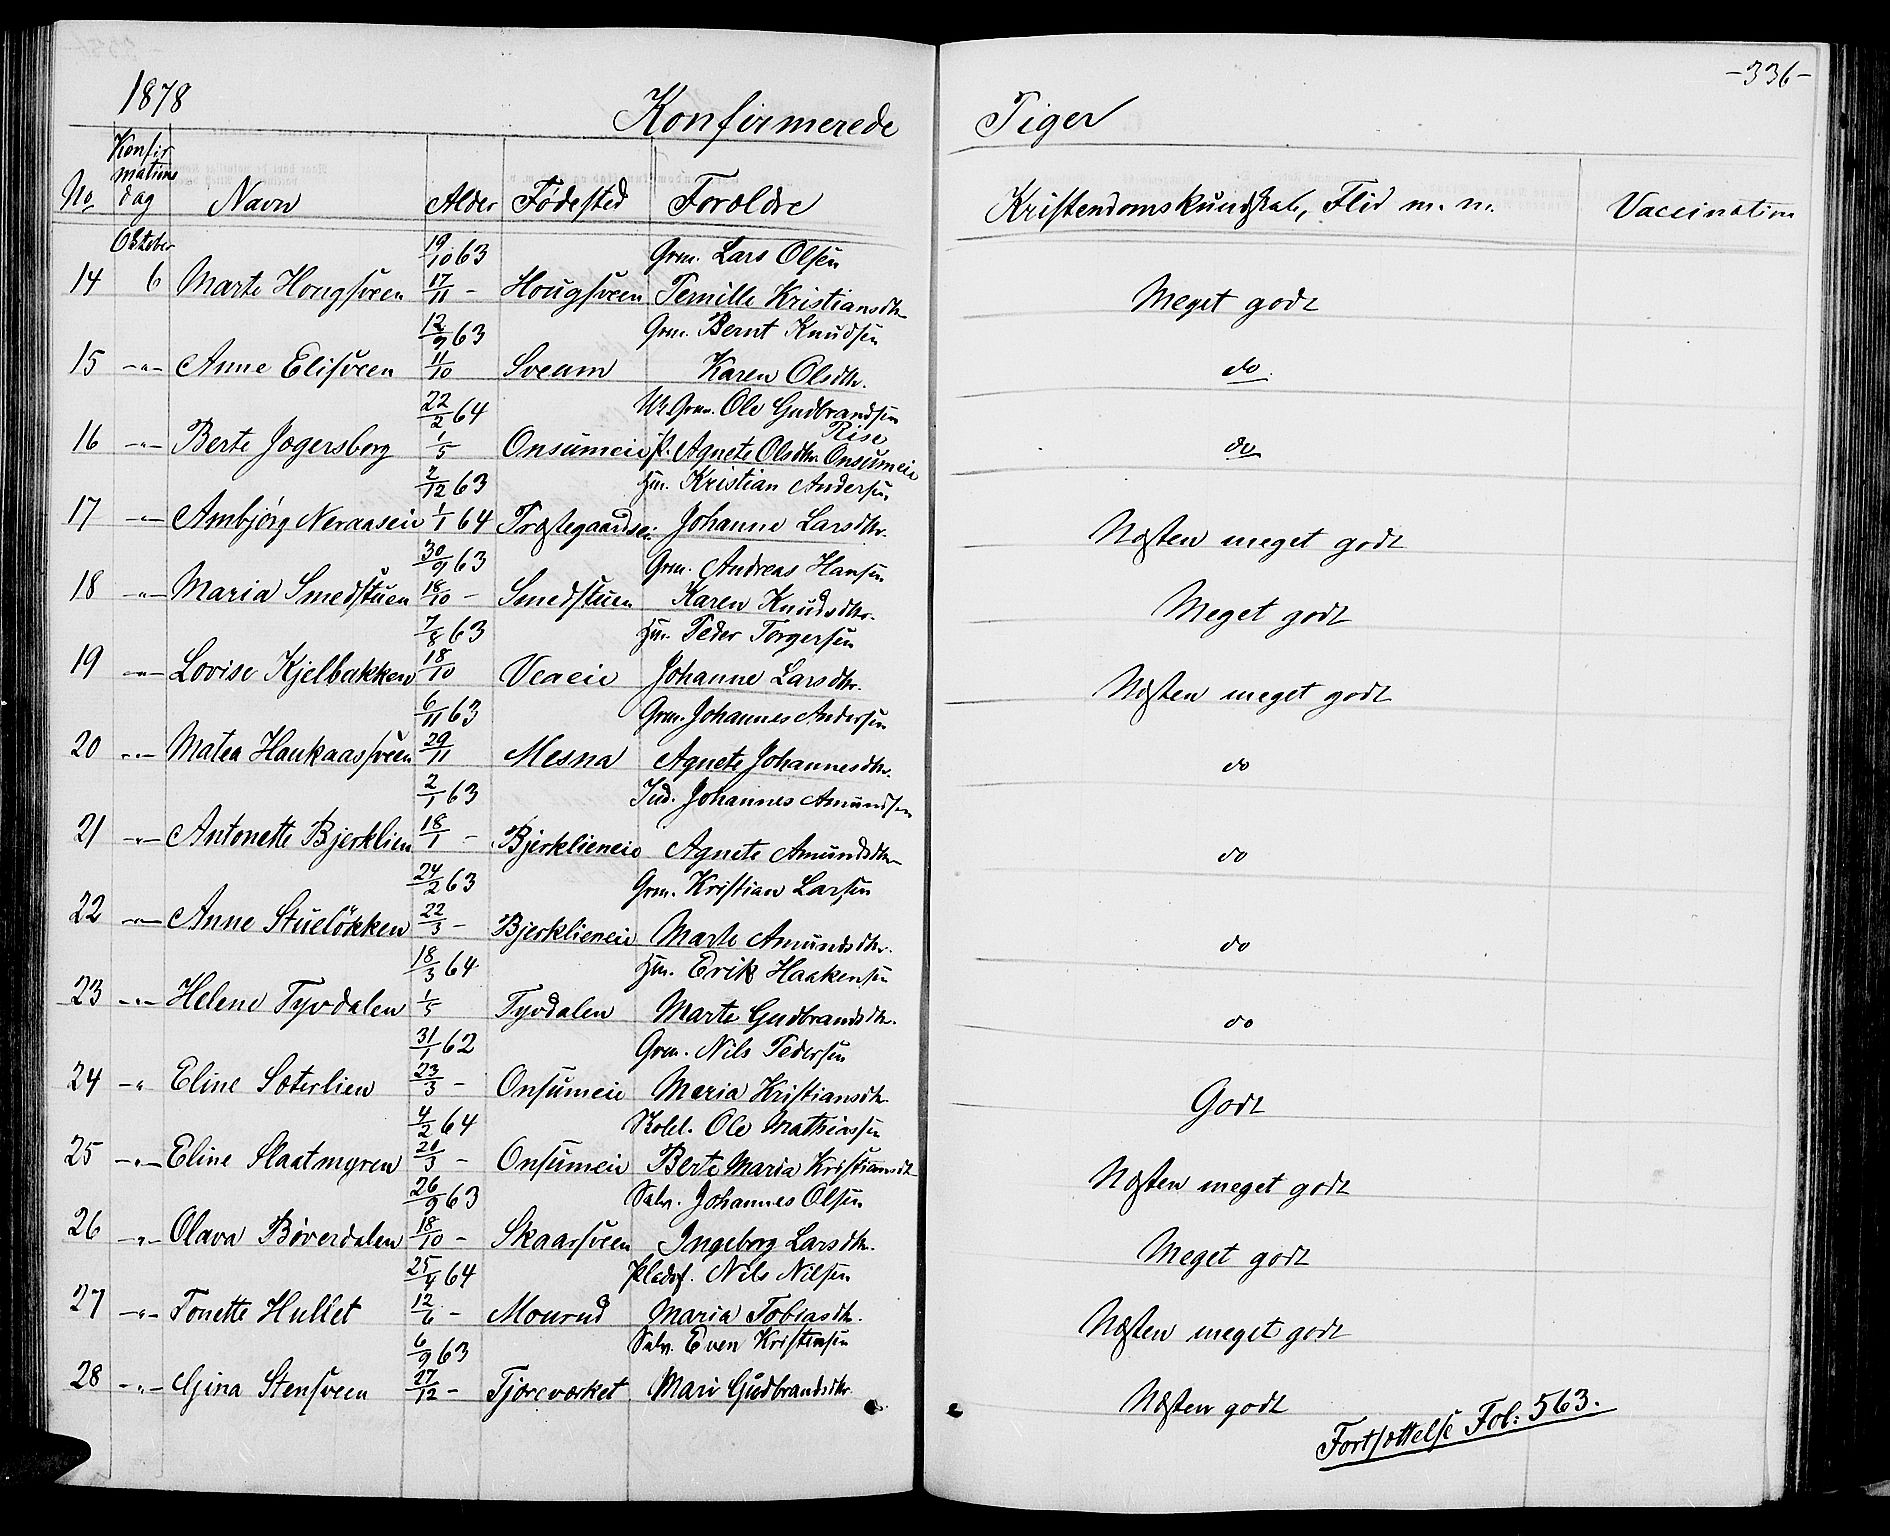 1878
Konfirmerede Piger
-336-
No Konfirmations dag Navn Alder Fødested Forældre Kristendomskundskab, Flid m. m. Vaccination
Oktober 19/10 63 Grm. Lars Olsen
14 6 Marte Hougsveen 17/11 - Hougsveen Pernille Kristiansdtr Meget godt
12/9 63 Grm. Bernt Knudsen
15 -"- Anne Elisveen 11/10 Sveum Karen Olsdtr. do
22/2 64 Uk. Grm. Ole Gudbrandsen Rise
16 -"- Berte Jægersborg 1/5 Onsumeie p. Agnete Olsdtr. Onsumeie do
2/12 63 Hm. Kristian Andersen
17 -"- Ambjørg Neraaseie 1/1 64 Præstegaardsei. Johanne Larsdtr. Næsten meget godt
30/9 63 Grm. Andreas Hansen
18 -"- Maria Smedstuen 18/10 - Smedstuen Karen Knudsdtr. Meget godt
7/8 63 Hm. Peder Torgersen
19 -"- Lovise Kjelbakken 18/10 Veaeie Johanne Larsdtr. Næsten meget godt
6/11 63 Grm. Johannes Andersen
20 -"- Matea Haukaassveen 29/11 Mesna Agnete Johannesdtr. do
2/1 63 Ind. Johannes Amundsen
21 -"- Antonette Bjerklien 18/1 - Bjerklieneie Agnete Amundsdtr do
24/2 63 Grm. Kristian Larsen
22 -"- Anne Stueløkken 22/3 - Bjerklieneie Marte Amundsdtr. do
18/3 64 Hm. Erik Haakensen
23 -"- Helene Tyvdalen 1/5 Tyvdalen Marte Gudbrandsdtr. do
31/1 62 Grm. Nils Pedersen
24 -" Eline Sæterlien 23/3 - Onsumeie Maria Kristiansdtr Godt
4/2 64 Ole Mathiassen
25 -"- Eline Slaatmyren 21/3 - Onsumeie Berte Maria Kristiansdtr Næsten meget godt
26/9 63 Selv. Johannes Olsen
26 -"- Olava Bøverdalen 18/10 - Skaarsveen Ingeborg Larsdtr. Meget godt
25/4 64 Pladsf. Nils Nilsen
27 -"- Tonette Hullet 12/6 - Mourud Maria Tobiasdtr. Næsten meget godt
6/9 63 Selv. Even Kristensen
28 -"- Gina Stensveen 27/12 - Tjæreværket Mari Gudbrandsdtr Næsten godt
Fortsættelse Fol: 563.